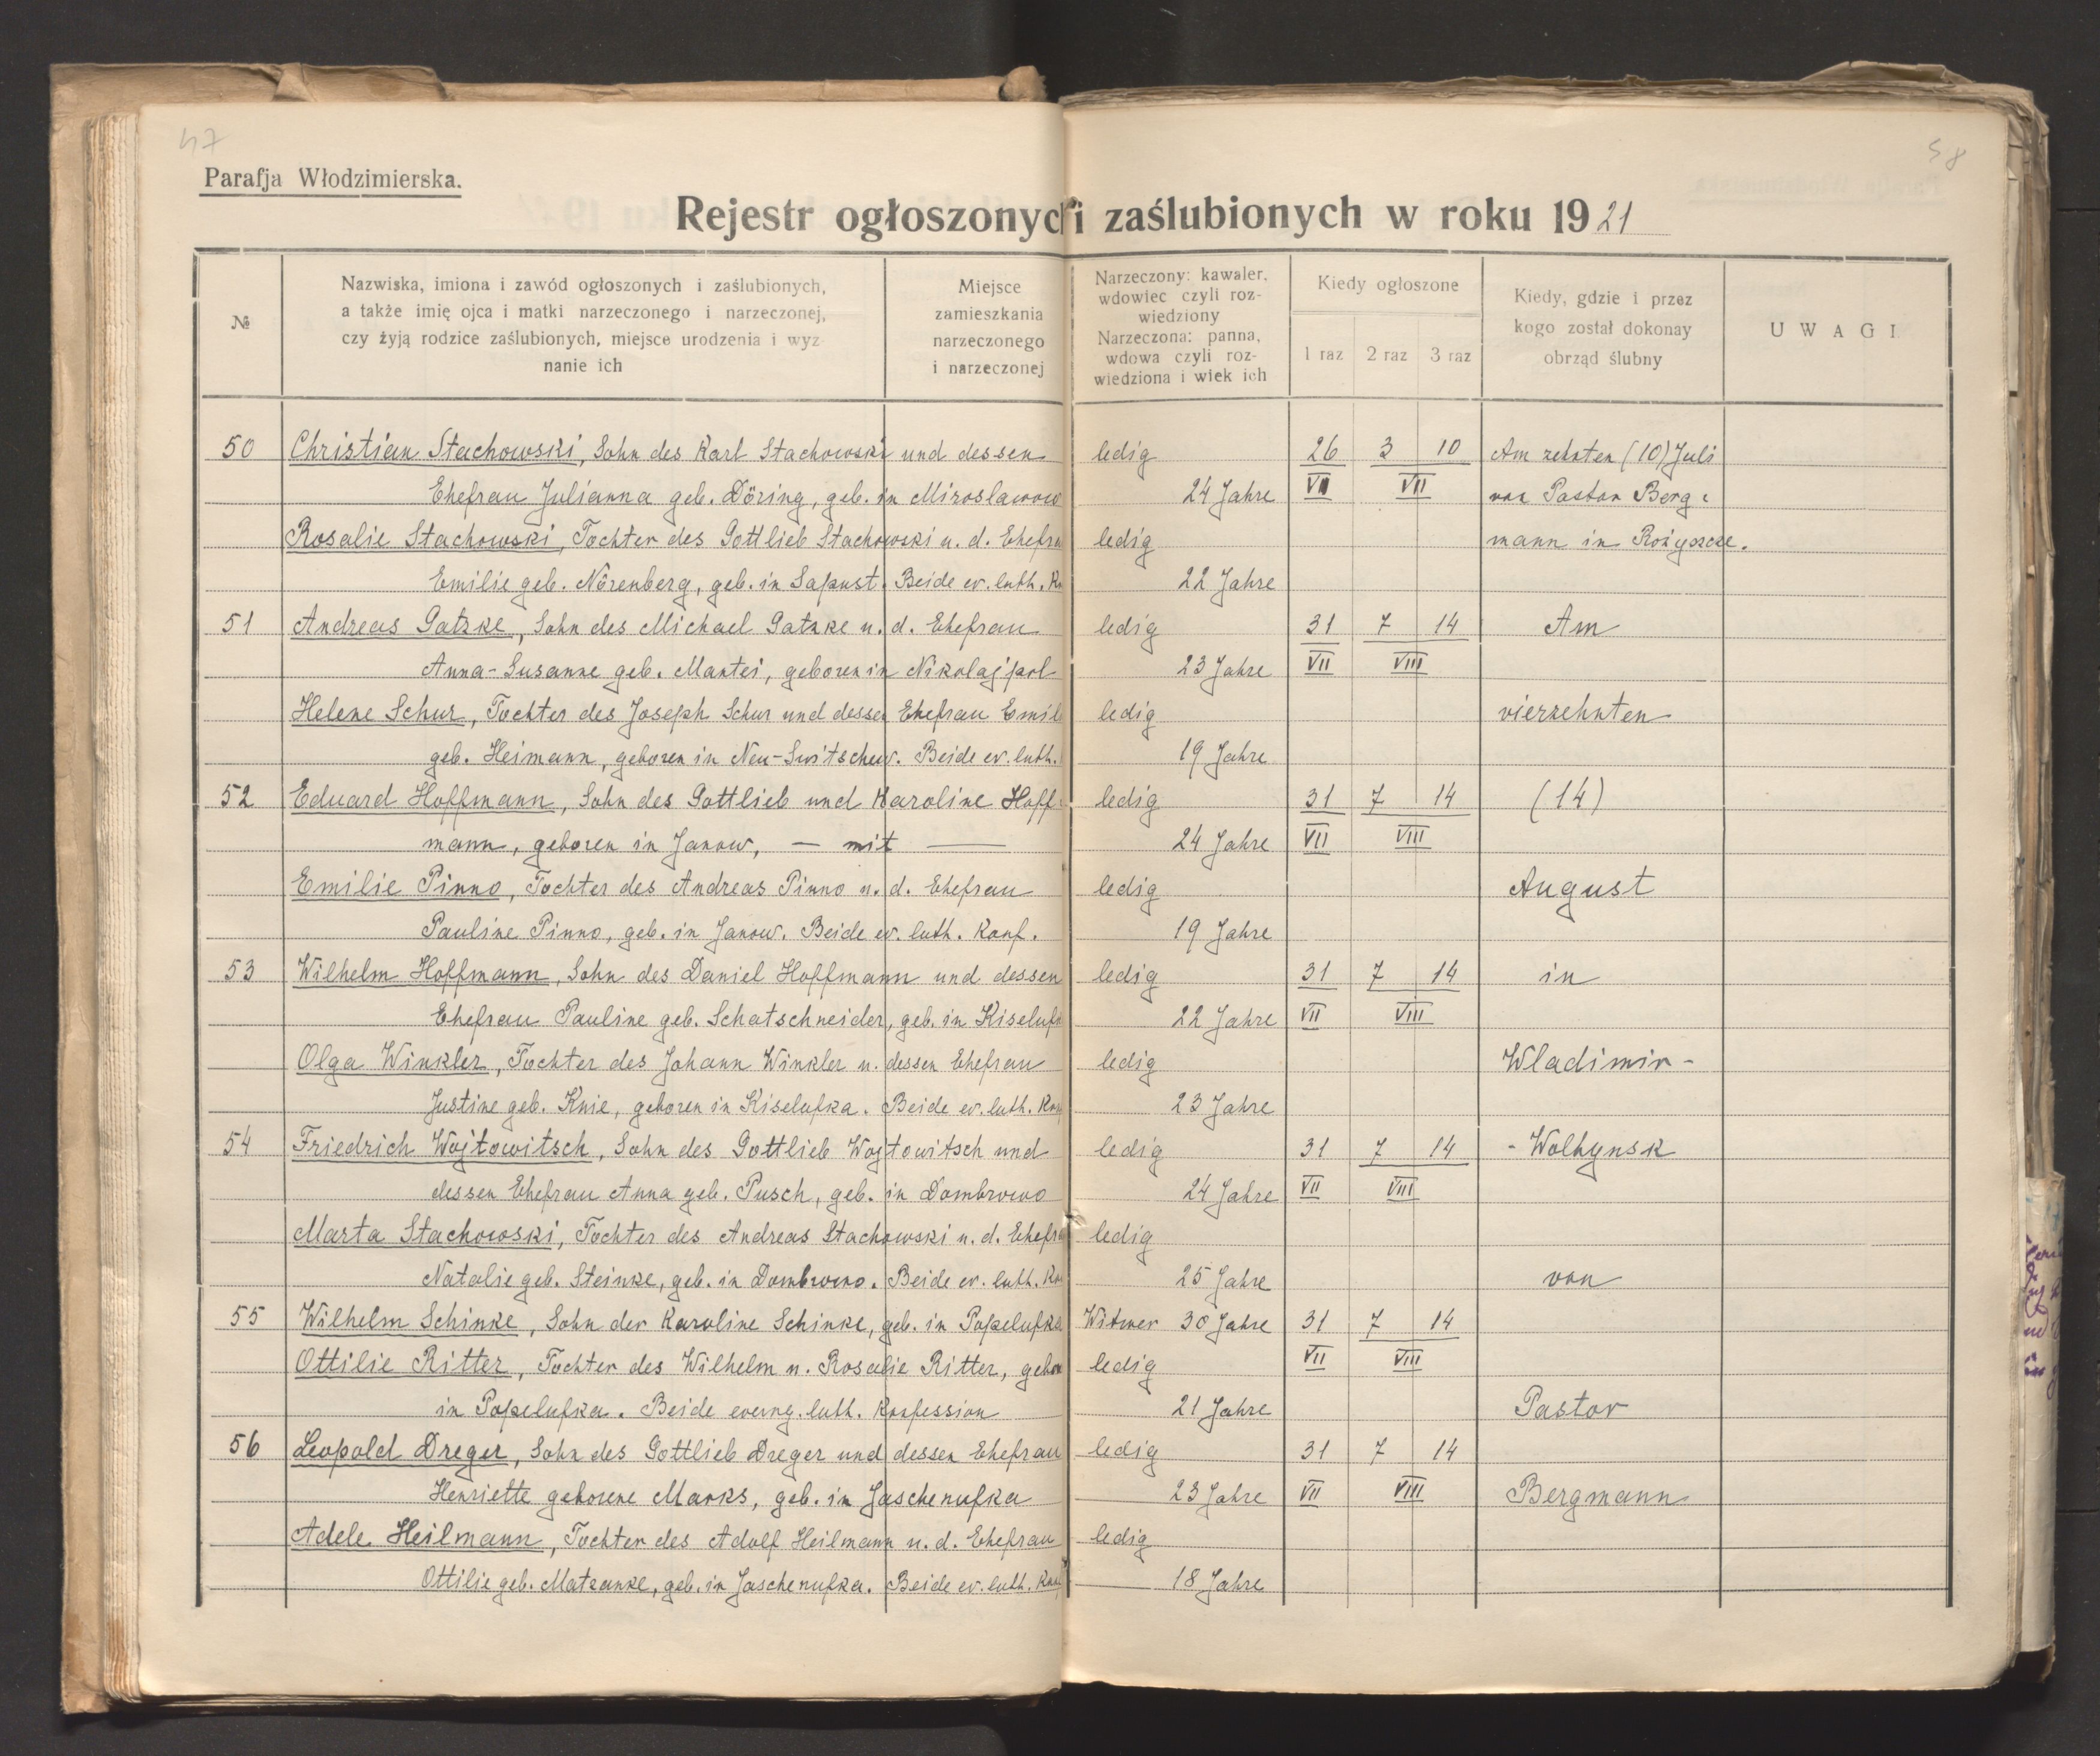 47
58
Parafja Włodzimierska.
Rejestr ogłoszonych i zaślubionych w roku 1921
№
Nazwiska, imiona i zawód ogłoszonych i zaślubionych,
a także imię ojca i matki narzeczonego i narzeczonej,
czy żyją rodzice zaślubionych, miejsce urodzenia i wyz
nanie ich
Miejsce
zamieszkania
narzeczonego
i narzeczonej
Narzeczony: kawaler,
wdowiec czyli roz-
wiedziony
Narzeczona: panna,
wdowa czyli roz-
wiedziona i wiek ich
Kiedy ogłoszone
1 raz 2 raz 3 raz
Kiedy, gdzie i przez
kogo został dokonay
obrząd ślubny
UWAGI
50 Christian Stachowski, Sohn des Karl Stachowski und dessen ledig 26 3 10 Am zehnten (10) Juli
Ehefrau Julianna geb. Döring, geb. in Miroslawow 24 Jahre VII VII von Pastor Berg-
Rosalie Stachowski, Tochter des Gottlieb Stachowski u. d. Ehefra ledig mann in Rożyszcze.
Emilie geb. Nörenberg, geb. in Sapust. Beide ev. luth. Ko 22 Jahre
51 Andreas Gatzke, Sohn des Michael Gatzke u. d. Ehefrau ledig 31 7 14 Am
Anna-Susanne geb. Mantei, geboren in Nikolajpol 23 Jahre VII VIII
Helene Schur, Tochter des Joseph Schur und dessen Ehefrau Emil ledig vierzehnten
geb. Heimann, geboren in Neu-Switschew. Beide ev. luth. 19 Jahre
52 Eduard Hoffmann, Sohn des Gottlieb und Karoline Hoff- ledig 31 7 14 (14)
mann, geboren in Janow, — mit — 24 Jahre VII VIII
Emilie Pinno, Tochter des Andreas Pinno u. d. Ehefrau ledig August
Pauline Pinno, geb. in Janow. Beide ev. luth. Konf. 19 Jahre
53 Wilhelm Hoffmann, Sohn des Daniel Hoffmann und dessen ledig 31 7 14 in
Ehefrau Pauline geb. Schatschneider, geb. in Kiselufk 22 Jahre VII VIII
Olga Winkler, Tochter des Johann Winkler u. dessen Ehefrau ledig Wladimir-
Justine geb. Knie, geboren in Kiselufka. Beide ev. luth. Kon 23 Jahre
54 Friedrich Wojtowitsch, Sohn des Gottlieb Wojtowitsch und ledig 31 7 14 -Wolhynsk
dessen Ehefrau Anna geb. Pusch, geb. in Dombrowo 24 Jahre VII VIII
Marta Stachowski, Tochter des Andreas Stachowski u. d. Ehefra ledig
Natalie geb. Steinke, geb. in Dombrowo. Beide ev. luth. Kon 25 Jahre von
55 Wilhelm Schinke, Sohn der Karoline Schinke, geb. in Popelufka Witwer 30 Jahre 31 7 14
Ottilie Ritter, Tochter des Wilhelm u. Rosalie Ritter, gebor ledig VII VIII
in Popelufka. Beide evang. luth. Konfession 21 Jahre Pastor
56 Leopold Dreger, Sohn des Gottlieb Dreger und dessen Ehefrau ledig 31 7 14
Henriette geborene Marks, geb. in Jaschenufka 23 Jahre VII VIII Bergmann
Adele Heilmann, Tochter des Adolf Heilmann u. d. Ehefrau ledig
Ottilie geb. Matzanke, geb. in Jaschenufka. Beide ev. luth. Konf 18 Jahre